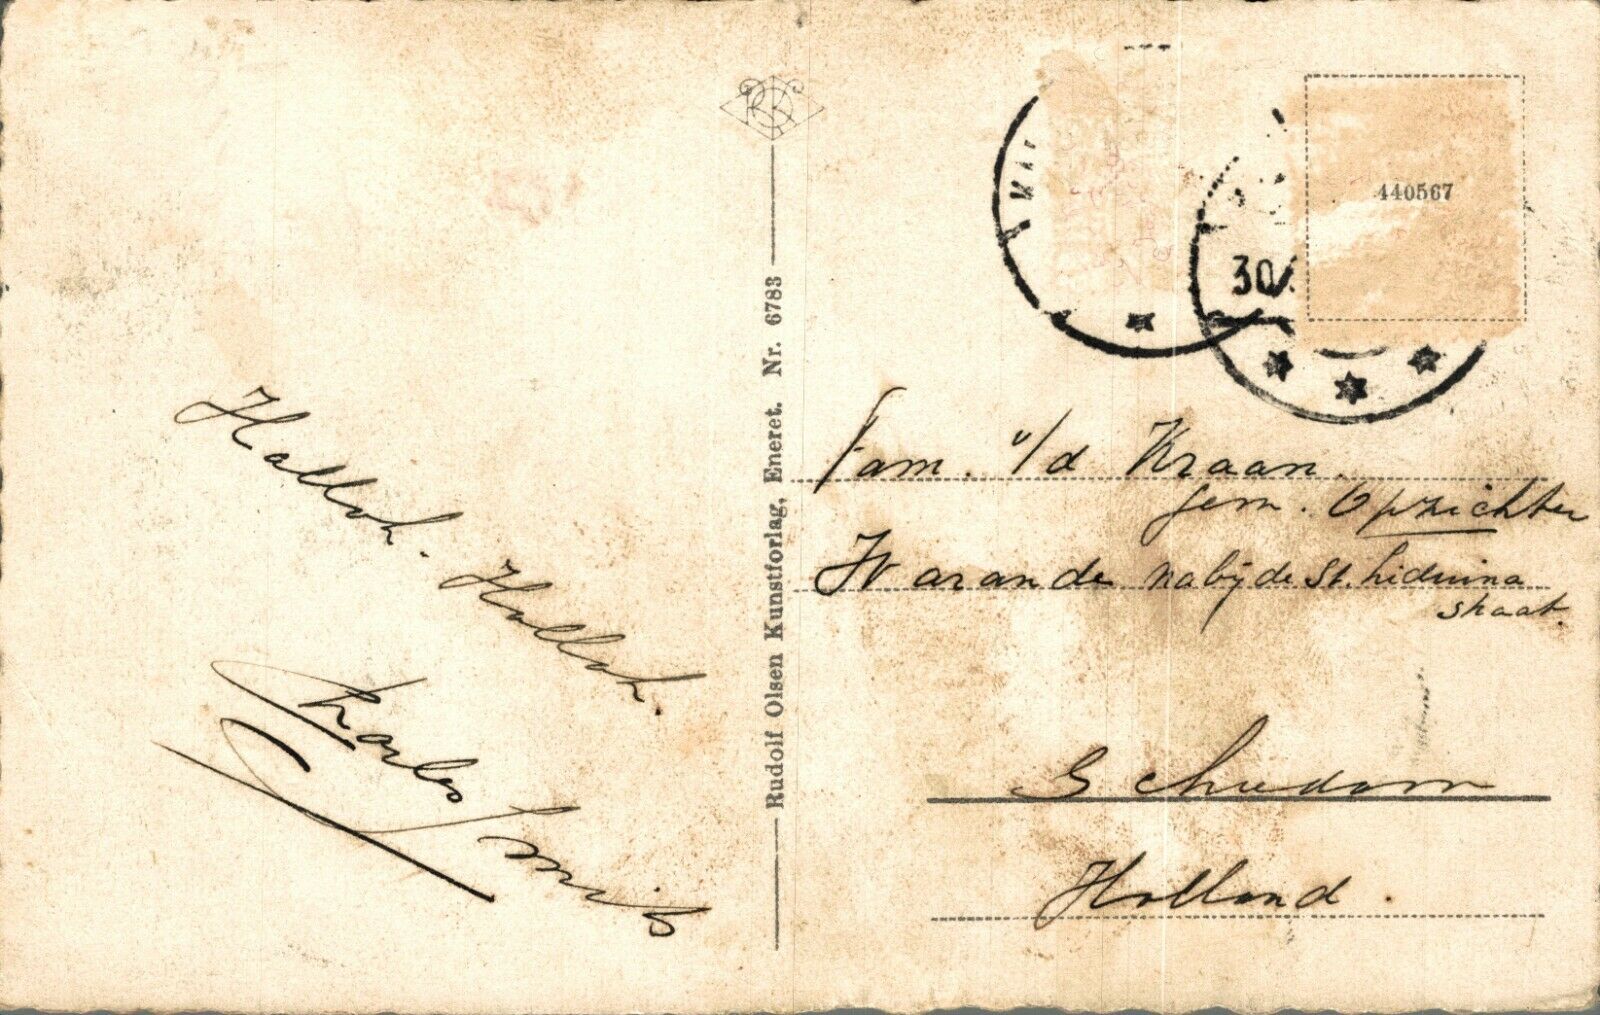 Halloh. Halloh.
Charles Smits
Rudolf Olsen Kunstforlag, Eneret. Nr. 6783
30
440567
Fam. v/d Kraan.
gem. Opzichter
Warande nabij de St. Liduina
straat.
Schiedam
Holland.